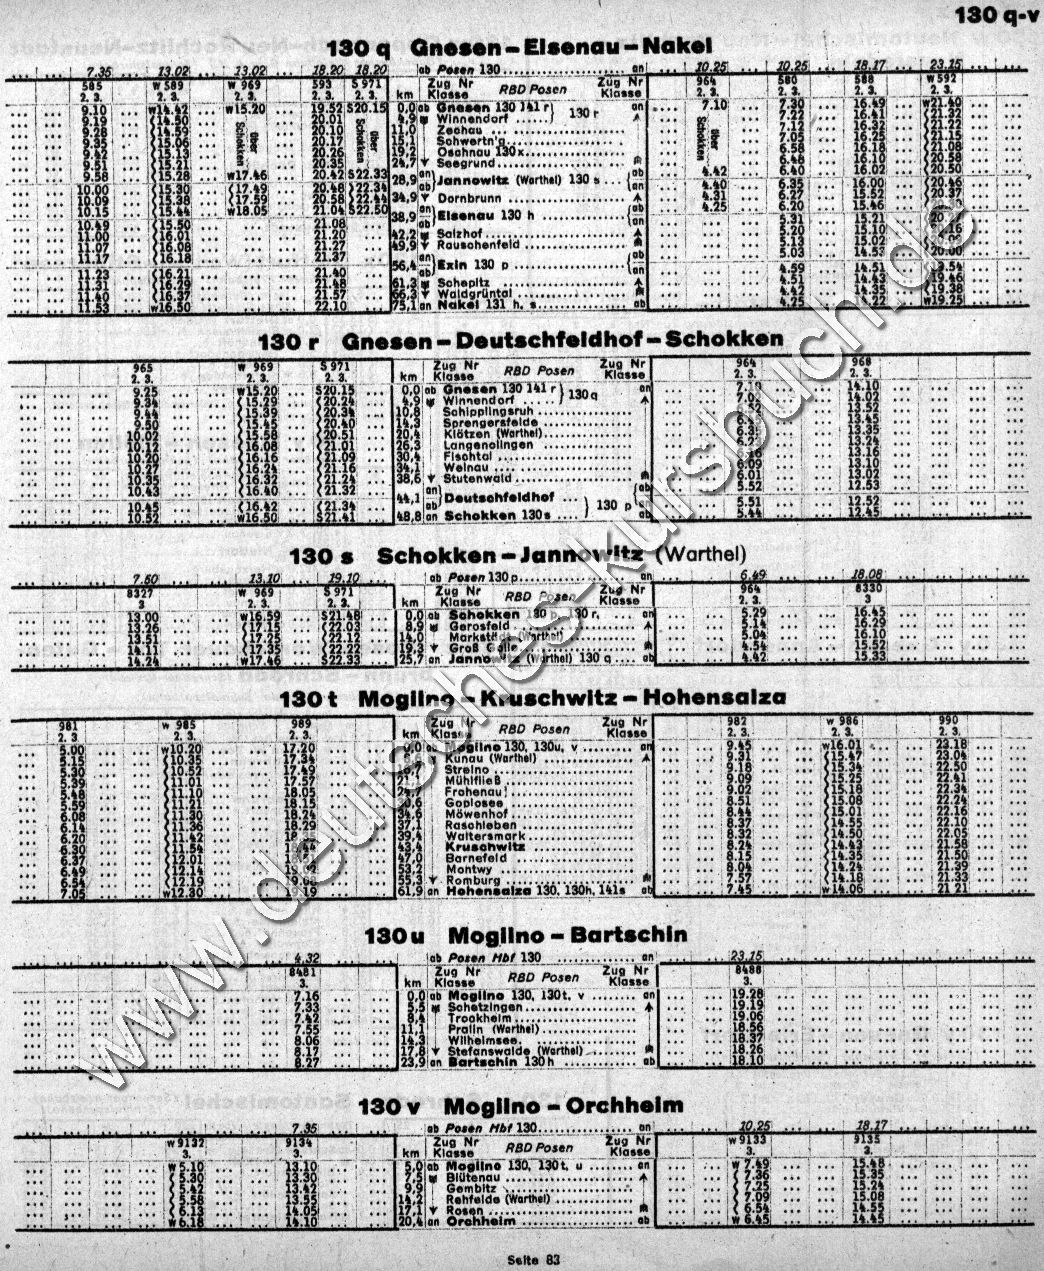 130 q-v
130 q Gnesen–Elsenau–Nakel
7.35 13.02 13.02 18.20 18.20 ab Posen 130 an 10.25 10.25 18.17 23.15
585 W 589 W 969 593 S 971 km Zug Nr Klasse RBD Posen Zug Nr Klasse 964 580 588 W 592
2. 3. 2. 3. 2. 3. 2. 3. 2. 3. 2. 3. 2. 3. 2. 3. 2. 3.
9.10 W14.42 W15.20 19.52 S20.15 0,0 ab Gnesen 130 141 r an 7.10 7.30 16.49 W21.40
9.19 14.50 20.01 4,9 Winnendorf 130 r 7.22 16.41 21.32
9.28 14.59 über Schokken 20.10 über Schokken 11,0 Zechau über Schokken 7.12 16.32 21.22
9.35 15.06 20.17 15,1 Schwertn'g 7.05 16.25 21.15
9.42 15.13 20.26 19,2 Oschnau 130x 6.58 16.18 21.08
9.51 15.21 20.35 24,7 Seegrund 6.48 16.10 20.58
9.58 15.28 W17.46 20.42 S22.33 28,9 an Jannowitz (Warthel) 130 s ab 4.42 6.40 16.02 20.50
10.00 15.30 17.49 20.48 S22.34 ab an 4.40 6.35 16.00 20.46
10.09 15.38 17.59 20.58 S22.44 34,9 Dornbrunn 4.31 6.27 15.52 20.37
10.15 15.44 W18.05 21.04 S22.50 38,9 an Elsenau 130 h ab 4.25 6.20 15.46
10.49 15.50 21.08 ab an 5.31 15.21
11.00 16.01 21.20 42,2 Salzhof 5.20 15.10
11.07 16.08 21.27 49,9 Rauschenfeld 5.13 15.02
11.17 16.18 21.37 56,4 an Exin 130 p ab 5.03 14.53 20.00
11.23 16.21 21.40 ab an 4.59 14.51
11.31 16.29 21.48 61,3 Schepitz 4.51 14.43 19.46
11.40 16.37 21.57 66,3 Waldgrüntal 4.42 14.35 19.38
11.53 W16.50 22.10 75,1 an Nakel 131 h, s ab 4.25 14.22 W19.25
130 r Gnesen–Deutschfeldhof–Schokken
965 W 969 S 971 km Zug Nr Klasse RBD Posen Zug Nr Klasse 964 968
2. 3. 2. 3. 2. 3. 2. 3. 2. 3.
9.25 W15.20 S20.15 0,0 ab Gnesen 130 141 r an 14.10
9.34 15.29 20.24 4,9 Winnendorf 130 q 14.02
9.44 15.39 20.34 10,8 Schipplingsruh 13.52
9.50 15.45 20.40 14,3 Sprengersfelde 13.45
10.02 15.58 20.51 20,4 Klötzen (Warthel) 13.35
10.12 16.08 21.01 26,3 Langenolingen 13.24
10.20 16.16 21.09 30,4 Fischtal 13.16
10.27 16.24 21.16 34,1 Welnau 6.09 13.10
10.35 16.32 21.24 38,6 Stutenwald 6.01 13.02
10.43 16.40 21.32 44,1 an Deutschfeldhof ab 5.52 12.53
10.45 16.42 21.34 ab 130 p an 5.51 12.52
10.52 W16.50 S21.41 48,8 an Schokken 130 s ab 5.44 12.45
130 s Schokken–Jannowitz (Warthel)
7.60 13.10 19.10 ab Posen 130 p an 6.49 18.08
8327 W 969 S 971 km Zug Nr Klasse RBD Posen Zug Nr Klasse 964 8330
3 2. 3. 2. 3. 2. 3. 3
13.00 W16.59 S21.48 0,0 ab Schokken 130 p, 130 r, an 5.29 16.45
13.26 17.15 22.03 8,9 Gerosfeld 5.14 16.29
13.51 17.25 22.12 14,0 Markstädt (Warthel) 5.04 16.10
14.11 17.35 22.22 19,3 Groß Golle 4.54 15.52
14.24 W17.46 S22.33 25,7 an Jannowitz (Warthel) 130 q ab 4.42 15.33
130 t Mogilno–Kruschwitz–Hohensalza
981 W 985 989 km Zug Nr Klasse RBD Posen Zug Nr Klasse 982 W 986 990
2. 3. 2. 3. 2. 3. 2. 3. 2. 3. 2. 3.
5.00 W10.20 17.20 0,0 ab Mogilno 130, 130u, v an 9.45 W16.01 23.18
5.15 10.35 17.34 Kunau (Warthel) 9.31 15.47 23.04
5.30 10.52 17.49 Strelno 9.18 15.34 22.50
5.39 11.01 17.57 Mühlfließ 9.09 15.25 22.41
5.48 11.10 18.05 Frohenau 9.02 15.18 22.34
5.59 11.21 18.15 Goplosee 8.51 15.08 22.24
6.08 11.30 18.24 34,6 Möwenhof 8.44 15.01 22.16
6.14 11.36 18.29 37,1 Raschleben 8.37 14.55 22.10
6.20 11.42 39,4 Waltersmark 8.32 14.50 22.05
6.30 11.54 43,4 Kruschwitz 8.24 14.43 21.58
6.37 12.01 47,0 Barnefeld 8.15 14.35 21.50
6.49 12.14 53,2 Montwy 8.04 14.24 21.39
6.54 12.19 55,3 Romburg 7.57 14.18 21.33
7.05 W12.30 19.19 61,9 an Hohensalza 130, 130h, 141s ab 7.45 W14.06 21.21
130 u Mogilno–Bartschin
4.32 ab Posen Hbf 130 an 23.15
8481 km Zug Nr Klasse RBD Posen Zug Nr Klasse 8488
3. 3.
7.16 0,0 ab Mogilno 130, 130t, v an 19.28
7.33 5,5 Schetzingen 19.19
7.42 8,4 Trockheim 19.06
7.55 11,1 Pralin (Warthel) 18.56
8.06 14,3 Wilhelmsee 18.37
8.17 17,8 Stefanswalde (Warthel) 18.26
8.27 23,9 an Bartschin 130 h ab 18.10
130 v Mogilno–Orchheim
7.35 ab Posen Hbf 130 an 10.25 18.17
W 9132 9134 km Zug Nr Klasse RBD Posen Zug Nr Klasse W 9133 9135
3. 3. 3. 3.
W 5.10 13.10 5,0 ab Mogilno 130, 130t, u an W 7.49 15.48
5.30 13.30 7,5 Blütenau 7.36 15.35
5.42 13.42 9,9 Gembitz 7.25 15.24
5.58 13.55 14,2 Rehfelde (Warthel) 7.09 15.08
6.13 14.05 17,1 Rosen 6.54 14.55
W 6.18 14.10 20,4 an Orchheim ab W 6.45 14.45
Seite 83
www.deutsches-kursbuch.de